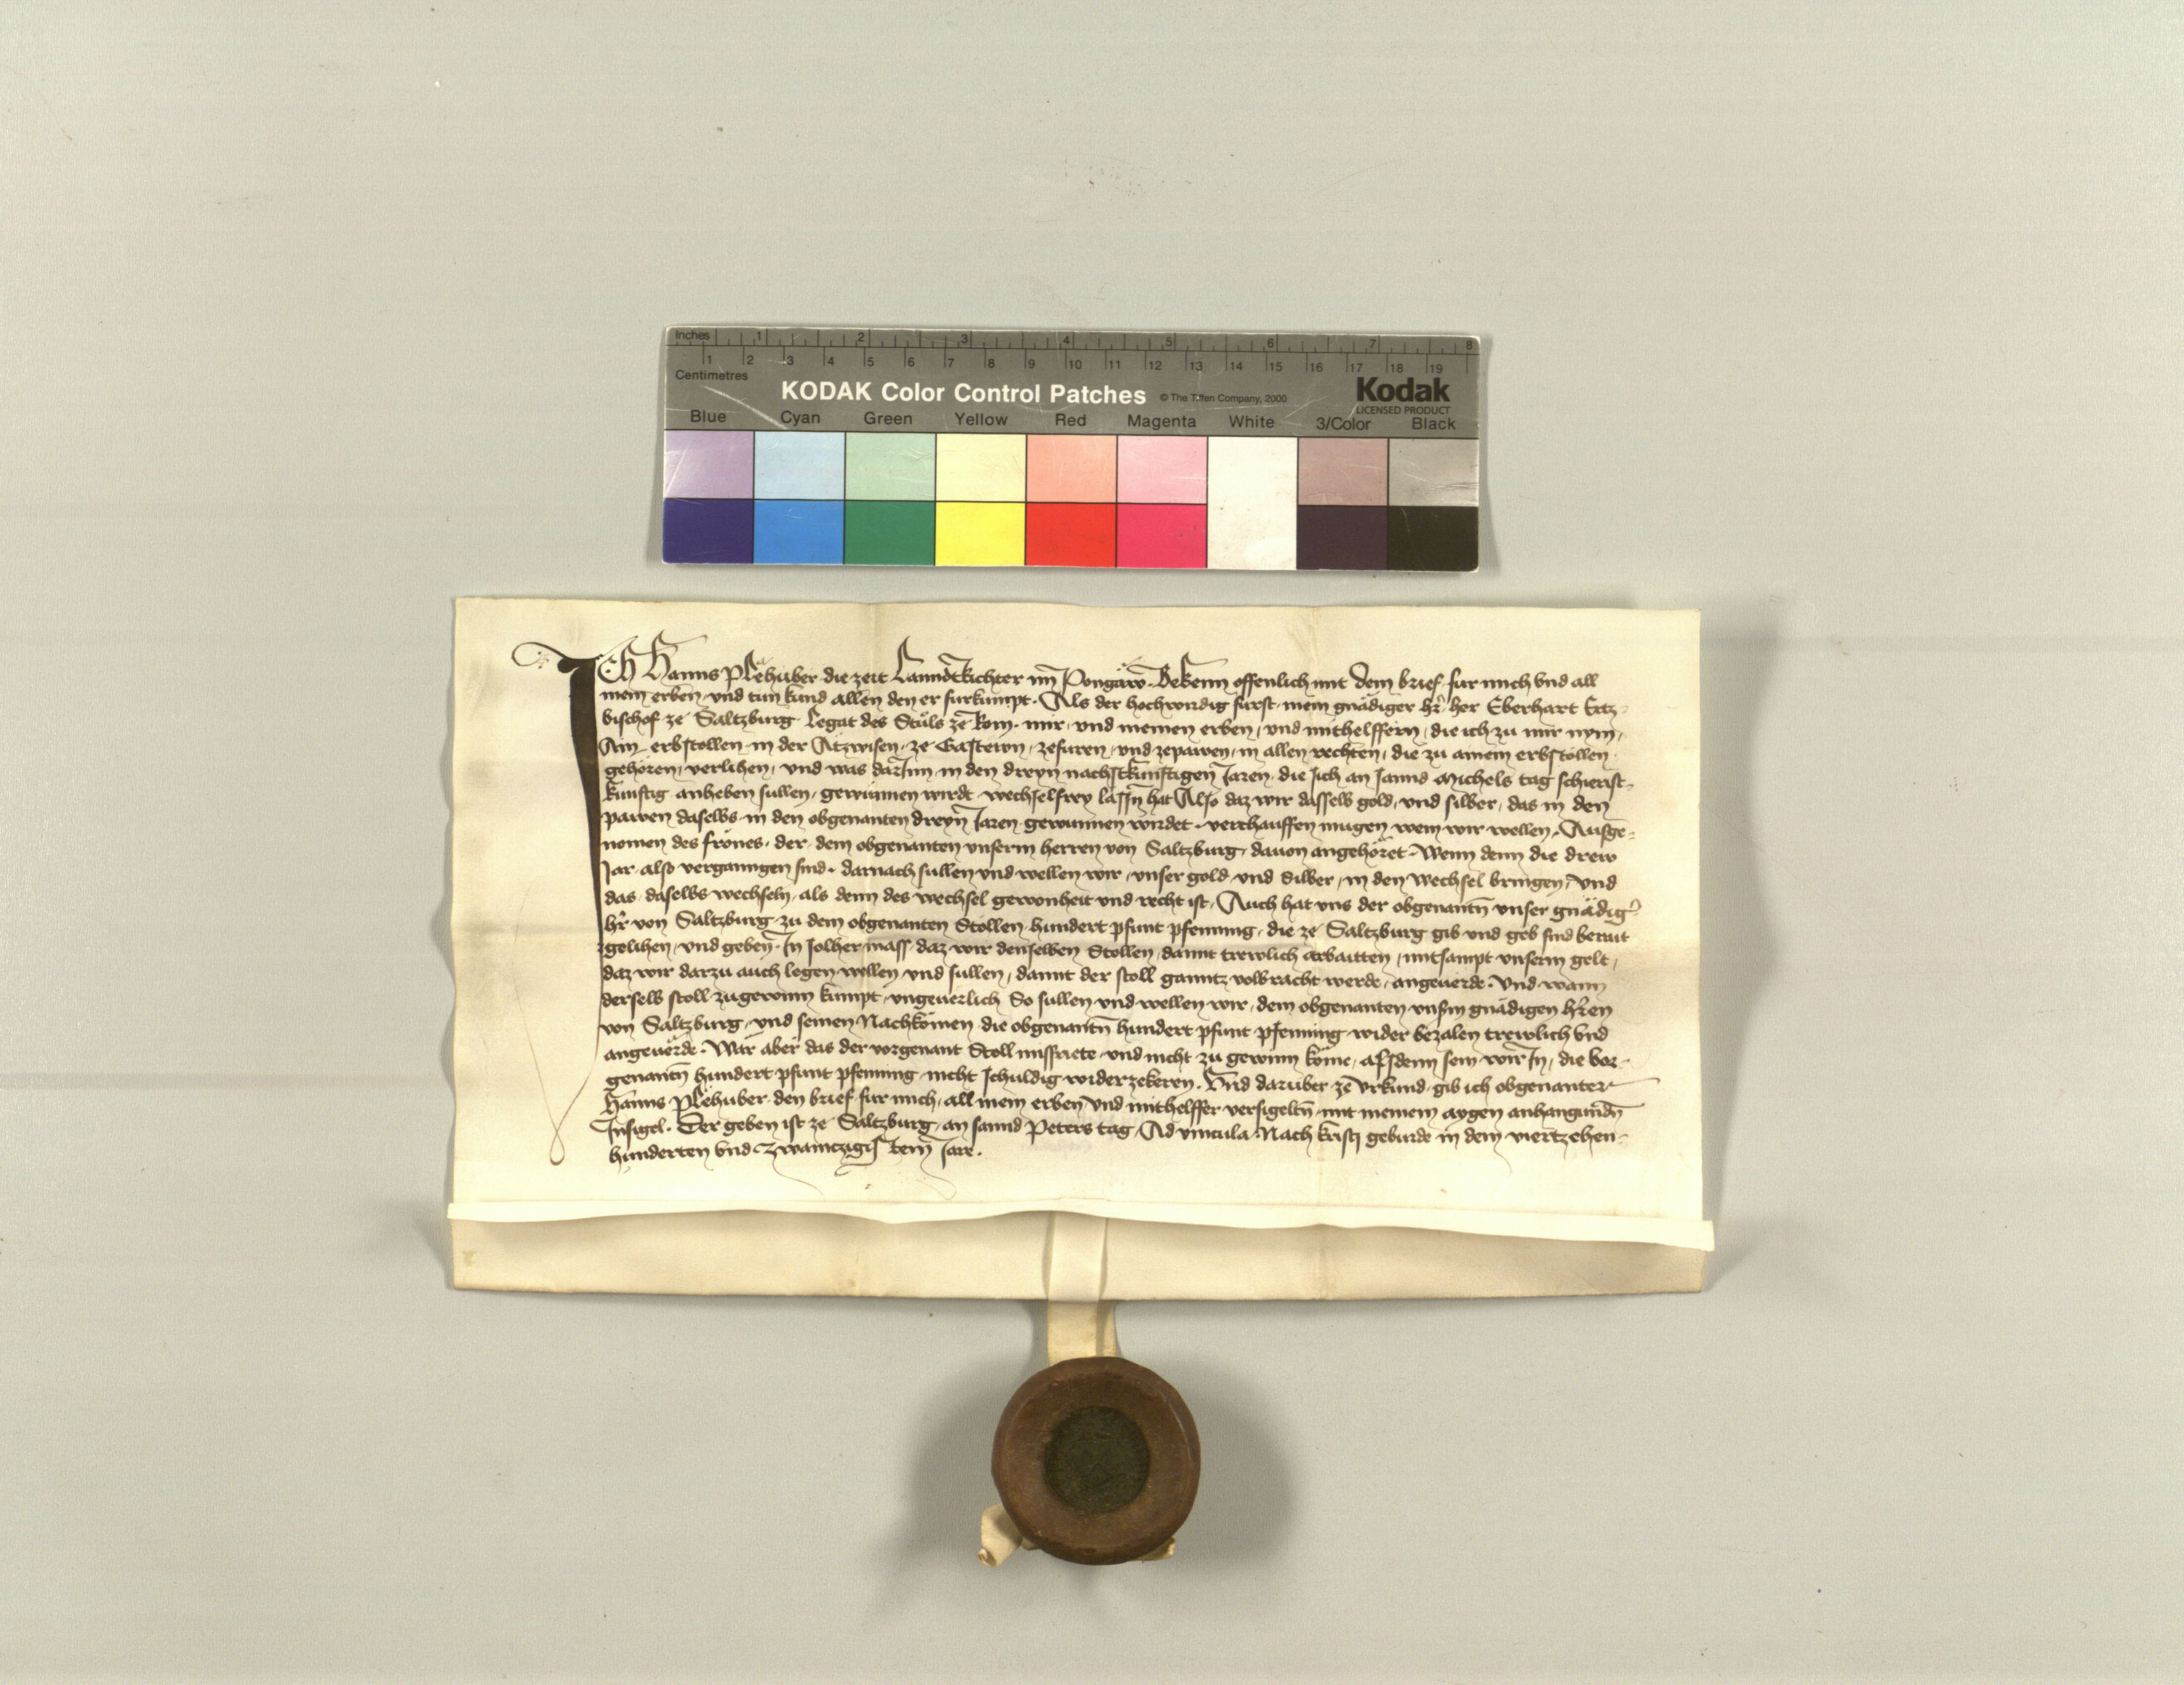 Inches 1 2 3 4 5 6 7 8
1 2 3 4 5 6 7 8 9 10 11 12 13 14 15 16 17 18 19
Centimetres
KODAK Color Control Patches © The Tiffen Company, 2000 Kodak
LICENSED PRODUCT
Blue Cyan Green Yellow Red Magenta White 3/Color Black
Ich Hanns Plëhuber die zeit Lanndtrichter im Pongäw. Bekenn offenlich mit dem brief fur mich vnd all
mein erben vnd tun kund allen den er furkumpt. Als der hochwirdig fürst mein gnädiger hr̄ her Eberhart Ertz-
bischof ze Saltzburg Legat des Stůls ze Rom. mir, vnd meinen erben, vnd mithelffern, die ich zu mir nym,
Ain erbstollen in der Atzwisen, ze Gastewn, zefüren, vnd zepawen, in allen rechten, die zu ainem erbstollen
gehören, verlihen, vnd was darInn in den dreyn nachstkunftigen Jaren, die sich an sannd Michels tag schierist-
kunftig anheben sullen, gewunnen wirdt wechselfrey lassn̄ hat Also daz wir dasselb gold, vnd silber, das in den
pawen daselbs in den obgenanten dreyn̄ Jaren gewunnen wirdet, verchauffen mugen wem wir wellen, Ausge-
nomen des frönes, der dem obgenanten vnserm herren von Saltzburg, dauon angehöret. Wenn denn die drew
Jar also vergangen sind, darnach sullen vnd wellen wir, vnser gold vnd Silber, in den wechsel bringen, Vnd
das daselbs wechseln, als denn des wechsel gewonheit vnd recht ist, Auch hat vns der obgenantn̄ vnser gnädig
hr̄ von Saltzburg, zu dem obgenanten Stollen hundert pfunt pfenning, die ze Saltzburg gib vnd geb sind berait
gelihen, vnd geben̄. In solher mass daz wir denselben Stollen, damit trewlich arbaitten, mitsampt vnserm gelt,
daz wir darzu auch legen wellen vnd sullen, damit der stoll ganntz volbracht werde, angeuerde. Vnd wann
derselb stoll zugewinn kumpt, vngeuerlich So sullen vnd wellen wir, dem obgenanten vnsm gnädigen hr̄en
von Saltzburg, vnd seinen Nachkömen die obgenantn̄ hundert pfunt pfenning wider bezalen trewlich vnd
angeuërde. Wär aber das der vorgenant Stoll missriete vnd nicht zu gewinn köme, alsdenn sein wir In, die vor-
genantn̄ hundert pfunt pfenning nicht schuldig widerzekeren. Vnd daruber ze vrkund, gib ich obgenanter
Hanns Plëhuber den brief fur mich, all mein erben vnd mithelffer versigeltn̄ mit meinem aygen anhangundn̄
Insigel. Der geben ist ze Saltzburg, an sannd Peters tag Ad vincula. Nach kristi geburde in dem viertzehen-
hunderten vnd Zwaintzigistem Jare.